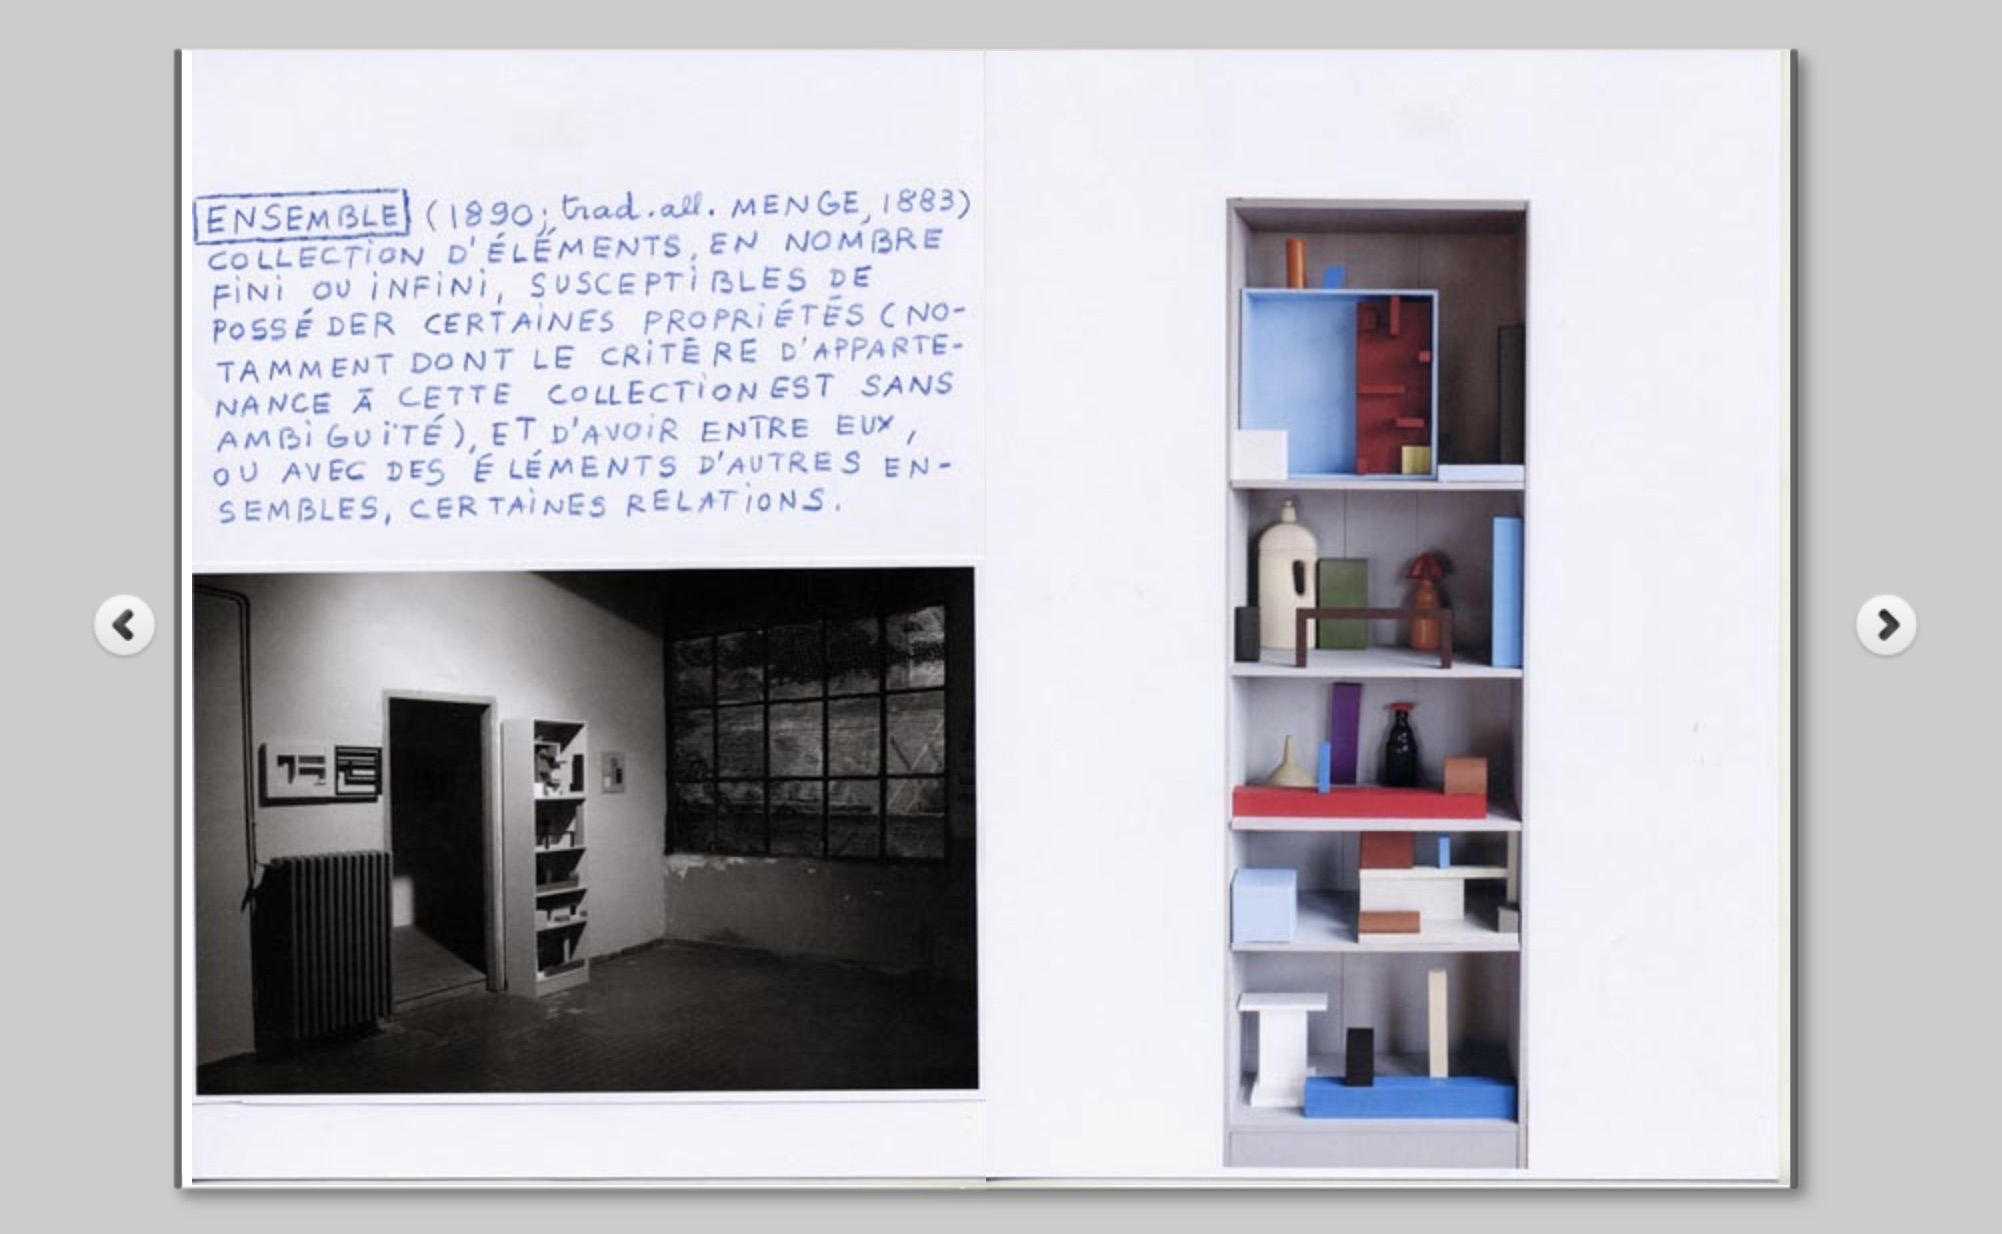 ENSEMBLE (1890; trad. all. MENGE, 1883)
COLLECTION D'ÉLÉMENTS, EN NOMBRE
FINI OU INFINI, SUSCEPTIBLES DE
POSSÉDER CERTAINES PROPRIÉTÉS (NO-
TAMMENT DONT LE CRITÈRE D'APPARTE-
NANCE À CETTE COLLECTION EST SANS
AMBIGUITÉ), ET D'AVOIR ENTRE EUX,
OU AVEC DES ÉLÉMENTS D'AUTRES EN-
SEMBLES, CERTAINES RELATIONS.